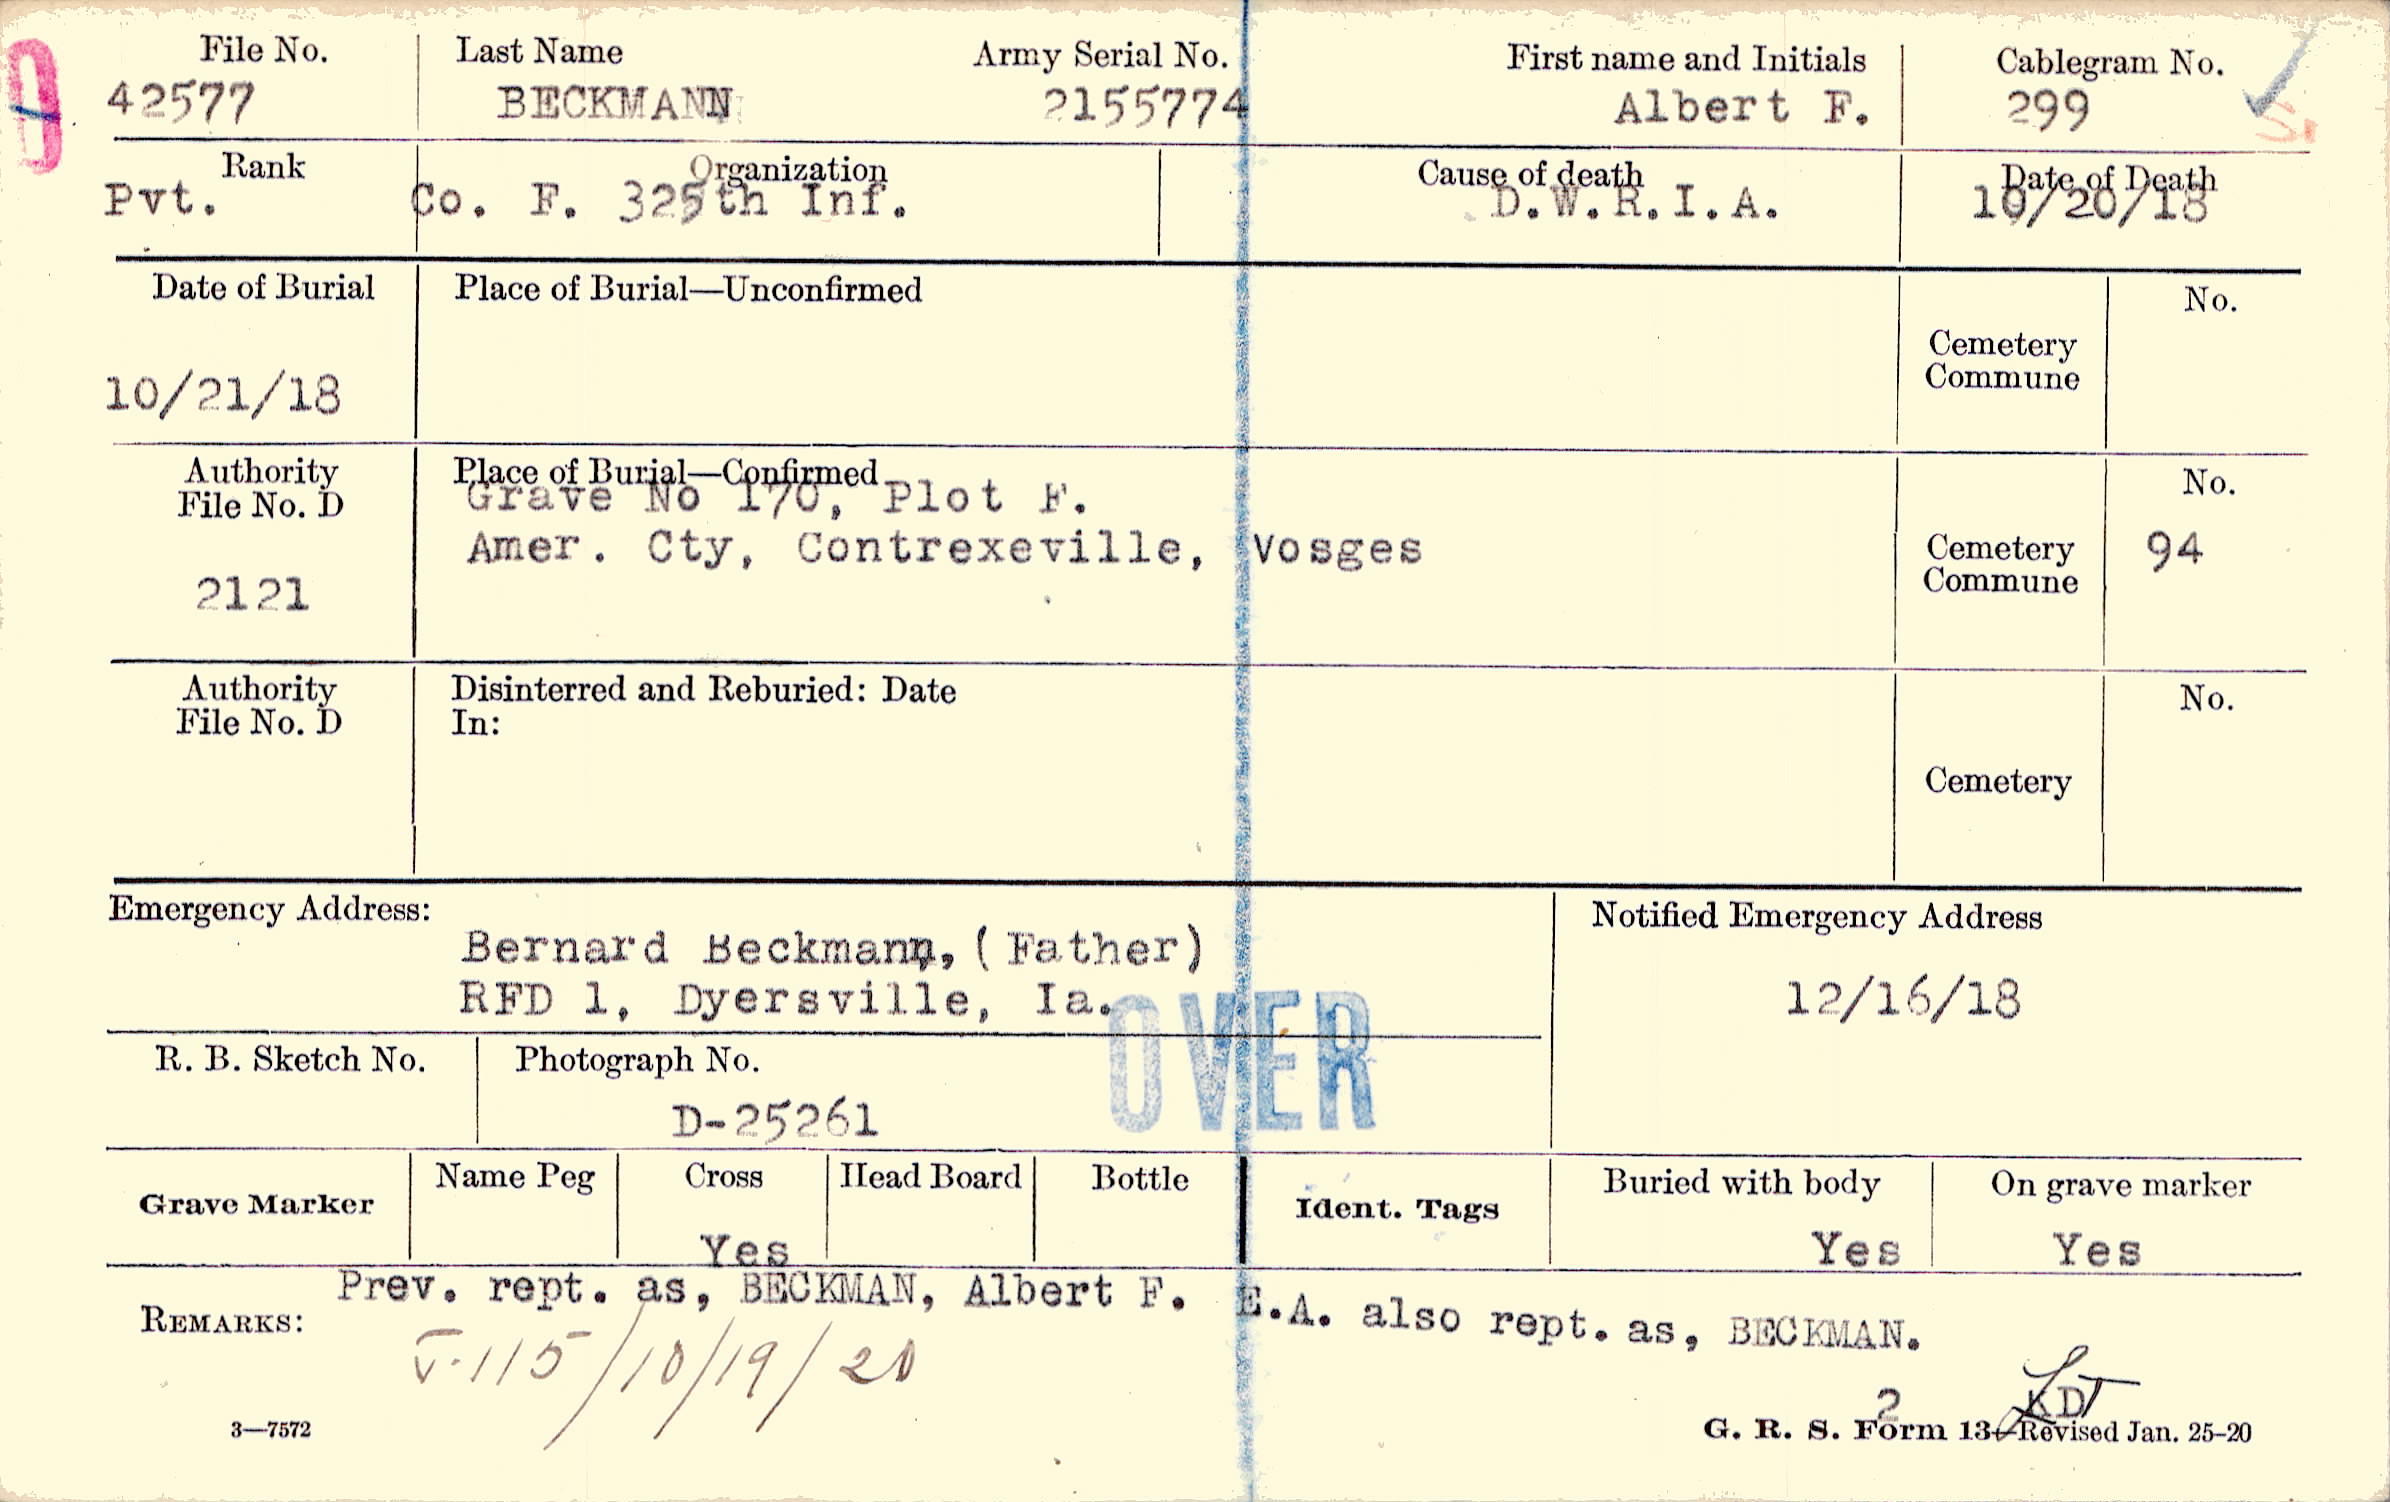 File No. Last Name Army Serial No. First name and Initials Cablegram No.
42577 BECKMANN 2155774 Albert F. 299
Rank Organization Cause of death Date of Death
Pvt. Co. F. 325th Inf. D.W.R.I.A. 10/20/18
Date of Burial Place of Burial—Unconfirmed No.
Cemetery
Commune
10/21/18
Authority Place of Burial—Confirmed No.
File No. D Grave No 170, Plot F.
Amer. Cty, Contrexeville, Vosges Cemetery 94
Commune
2121
Authority Disinterred and Reburied: Date No.
File No. D In:
Cemetery
Emergency Address: Notified Emergency Address
Bernard Beckmann, (Father)
RFD 1, Dyersville, Ia. 12/16/18
OVER
R. B. Sketch No. Photograph No.
D-25261
Grave Marker Name Peg Cross Head Board Bottle Ident. Tags Buried with body On grave marker
Yes Yes Yes
Prev. rept. as, BECKMAN, Albert F. E.A. also rept. as, BECKMAN.
REMARKS:
V-115/10/19/20
2 KDT
3—7572 G. R. S. Form 13—Revised Jan. 25-20